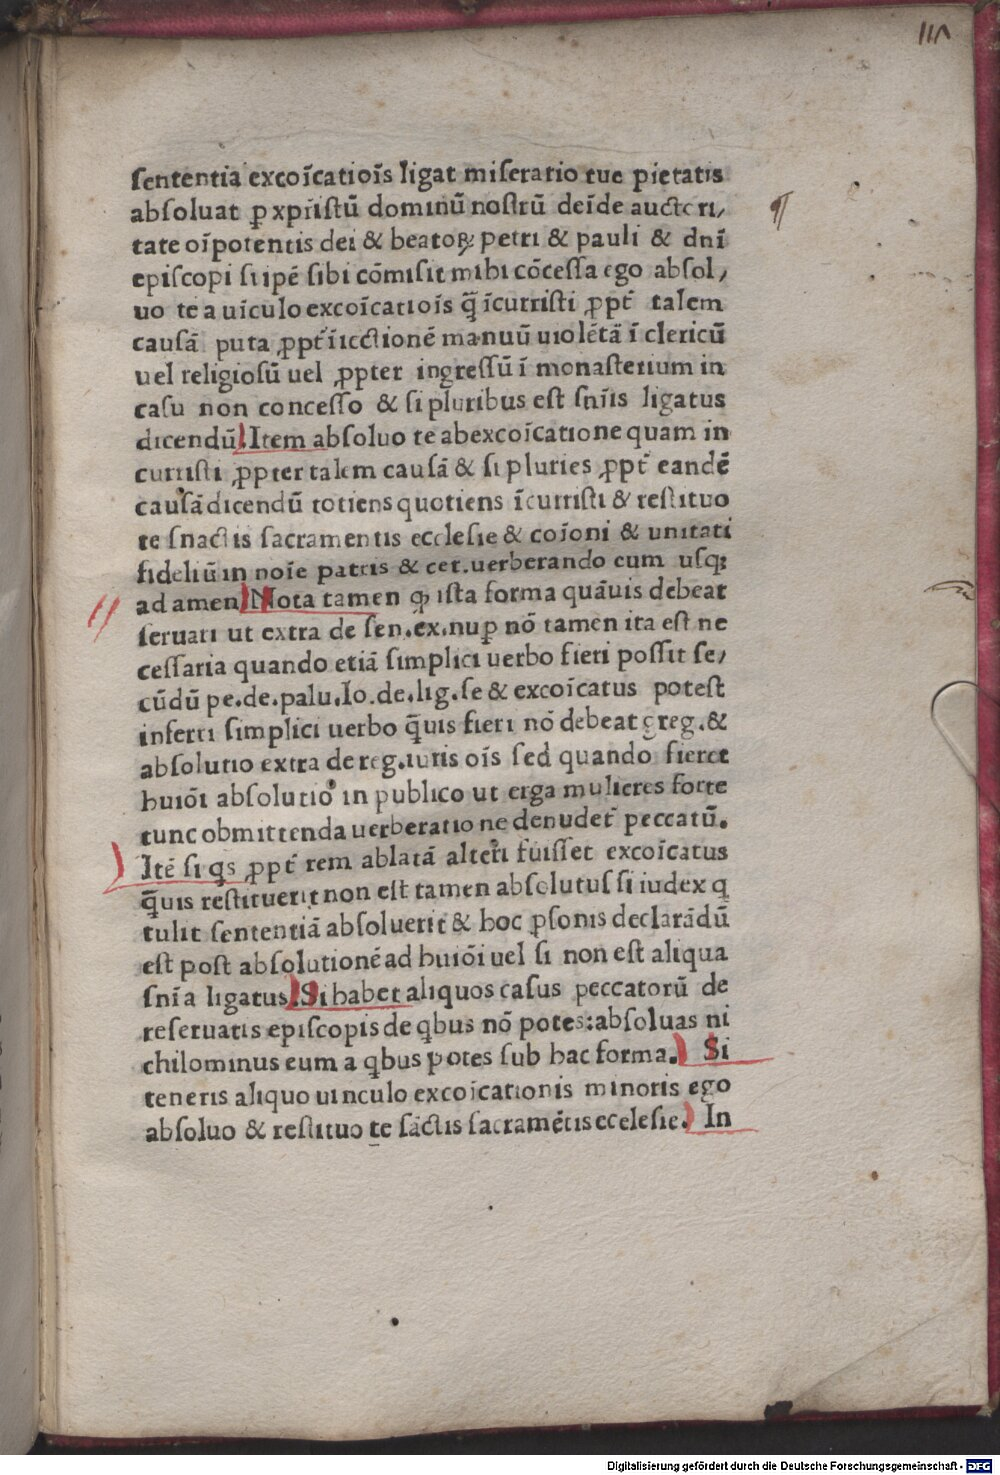 sententia excoīcatiōis ligat miseratio tue pietatis
absoluat ꝑ xpr̄istū dominū nostrū deīde aucteri,
tate oīpotentis dei & beatoꝝ petri & pauli & dnī
episcopi si ipē sibi cōmisit mihi cōcessa ego absol,
uo te a uīculo excoīcatiōis q̄ īcurristi ꝓpt̄ talem
causā puta ꝓpt̄ īiectionē manuū uiolētā ī clericū
uel religiosū uel ꝓpter ingressū ī monasterium in
casu non concesso & si pluribus est sn̄iis ligatus
dicendū. Item absoluo te abexcoīcatione quam in
curristi ꝓpter talem causā & si pluries ꝓpt̄ eandē
causādicendū totiens quotiens īcurristi & restituo
te snactis sacramentis ecclesie & coīoni & unitati
fideliū in noīe patris & cet.uerberando eum usqꝫ
ad amen. Nota tamen ꝙ ista forma quāuis debeat
seruari ut extra de sen.ex.nuꝑ nō tamen ita est ne
cessaria quando etiā simplici uerbo fieri possit se,
cūdū pe.de.palu.Io.de.lig.se & excoīcatus potest
inferri simplici uerbo q̄uis fieri nō debeat greg.&
absolutio extra de reg.iuris oīs sed quando fieret
huiōi absolutio in publico ut erga mulieres forte
tunc obmittenda uerberatio ne denudet̄ peccatū.
Itē si qs ꝓpt̄ rem ablatā alteri fuisset excoīcatus
q̄uis restituerit non est tamen absolutus si iudex q
tulit sententiā absoluerit & hoc ꝑsonis declarādū
est post absolutionē ad huiōi uel si non est aliqua
snīa ligatus. Si habet aliquos casus peccatorū de
reseruatis episcopis de qbus nō potes: absoluas ni
chilominus eum a qbus potes sub hac forma. Si
teneris aliquo uinculo excoīcationis minoris ego
absoluo & restituo te sāctis sacramētis ecelesie. In
Digitalisierung gefördert durch die Deutsche Forschungsgemeinschaft - DFG